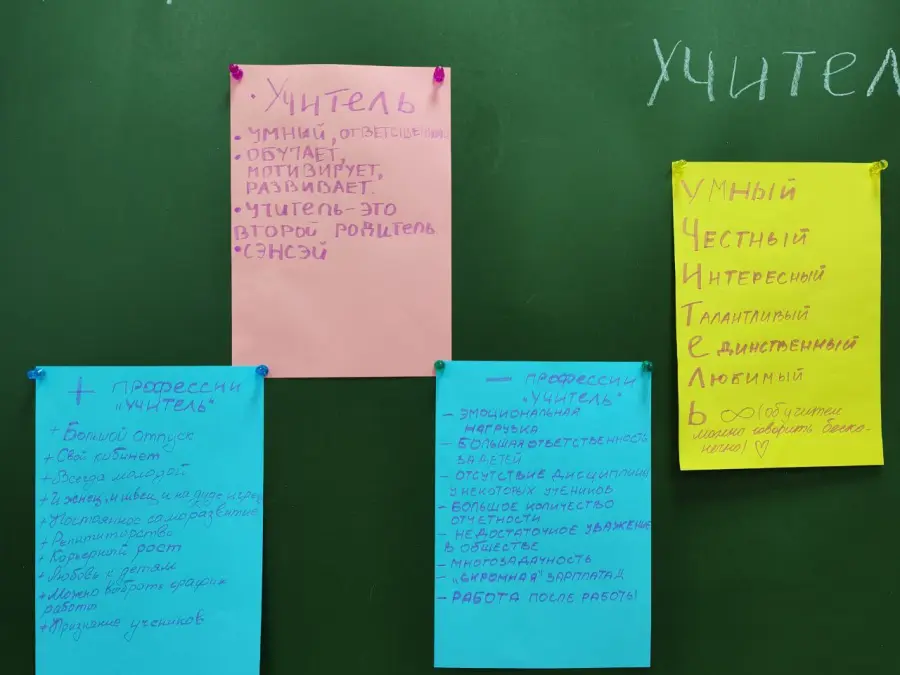 Учител
• Учитель
• УМНЫЙ,
• ОБУЧАЕТ,
МОТИВИРУЕТ,
РАЗВИВАЕТ.
• УЧИТЕЛЬ-ЭТО
ВТОРОЙ РОДИТЕЛЬ
• СЭНСЭЙ
УМНЫЙ
ЧЕСТНЫЙ
ИНТЕРЕСНЫЙ
ТАЛАНТЛИВЫЙ
ЕДИНСТВЕННЫЙ
ЛЮБИМЫЙ
Ь ∞ (об учителе
можно говорить беско-
нечно) ♡
+ ПРОФЕССИИ
"УЧИТЕЛЬ"
+ Большой отпуск
+ Свой кабинет
+ Всегда молодой
+ И жнец, и швец, и на дуде игрец
+ Постоянное саморазвитие
+ Репетиторство
+ Карьерный рост
+ Любовь к детям
+ Можно выбрать график
работы
+ Признание учеников
— ПРОФЕССИИ
"УЧИТЕЛЬ"
- ЭМОЦИОНАЛЬНАЯ
НАГРУЗКА
- БОЛЬШАЯ ОТВЕТСТВЕННОСТЬ
ЗА ДЕТЕЙ
- ОТСУТСТВИЕ ДИСЦИПЛИНЫ
У НЕКОТОРЫХ УЧЕНИКОВ
- БОЛЬШОЕ КОЛИЧЕСТВО
ОТЧЕТНОСТИ
- НЕДОСТАТОЧНОЕ УВАЖЕНИЕ
В ОБЩЕСТВЕ
- МНОГОЗАДАЧНОСТЬ
- "СКРОМНАЯ" ЗАРПЛАТА
- РАБОТА ПОСЛЕ РАБОТЫ